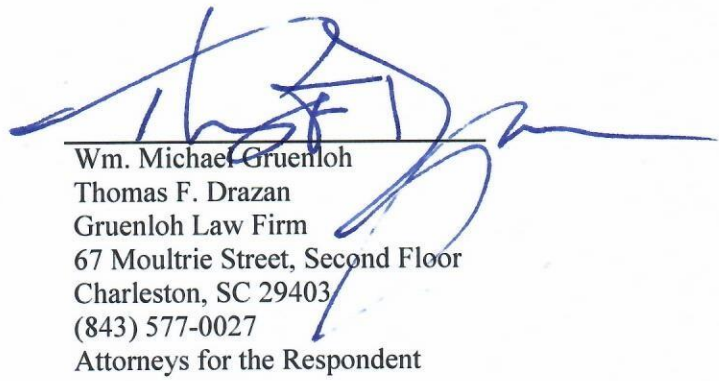 Wm. Michael Gruenloh
Thomas F. Drazan
Gruenloh Law Firm
67 Moultrie Street, Second Floor
Charleston, SC 29403
(843) 577-0027
Attorneys for the Respondent